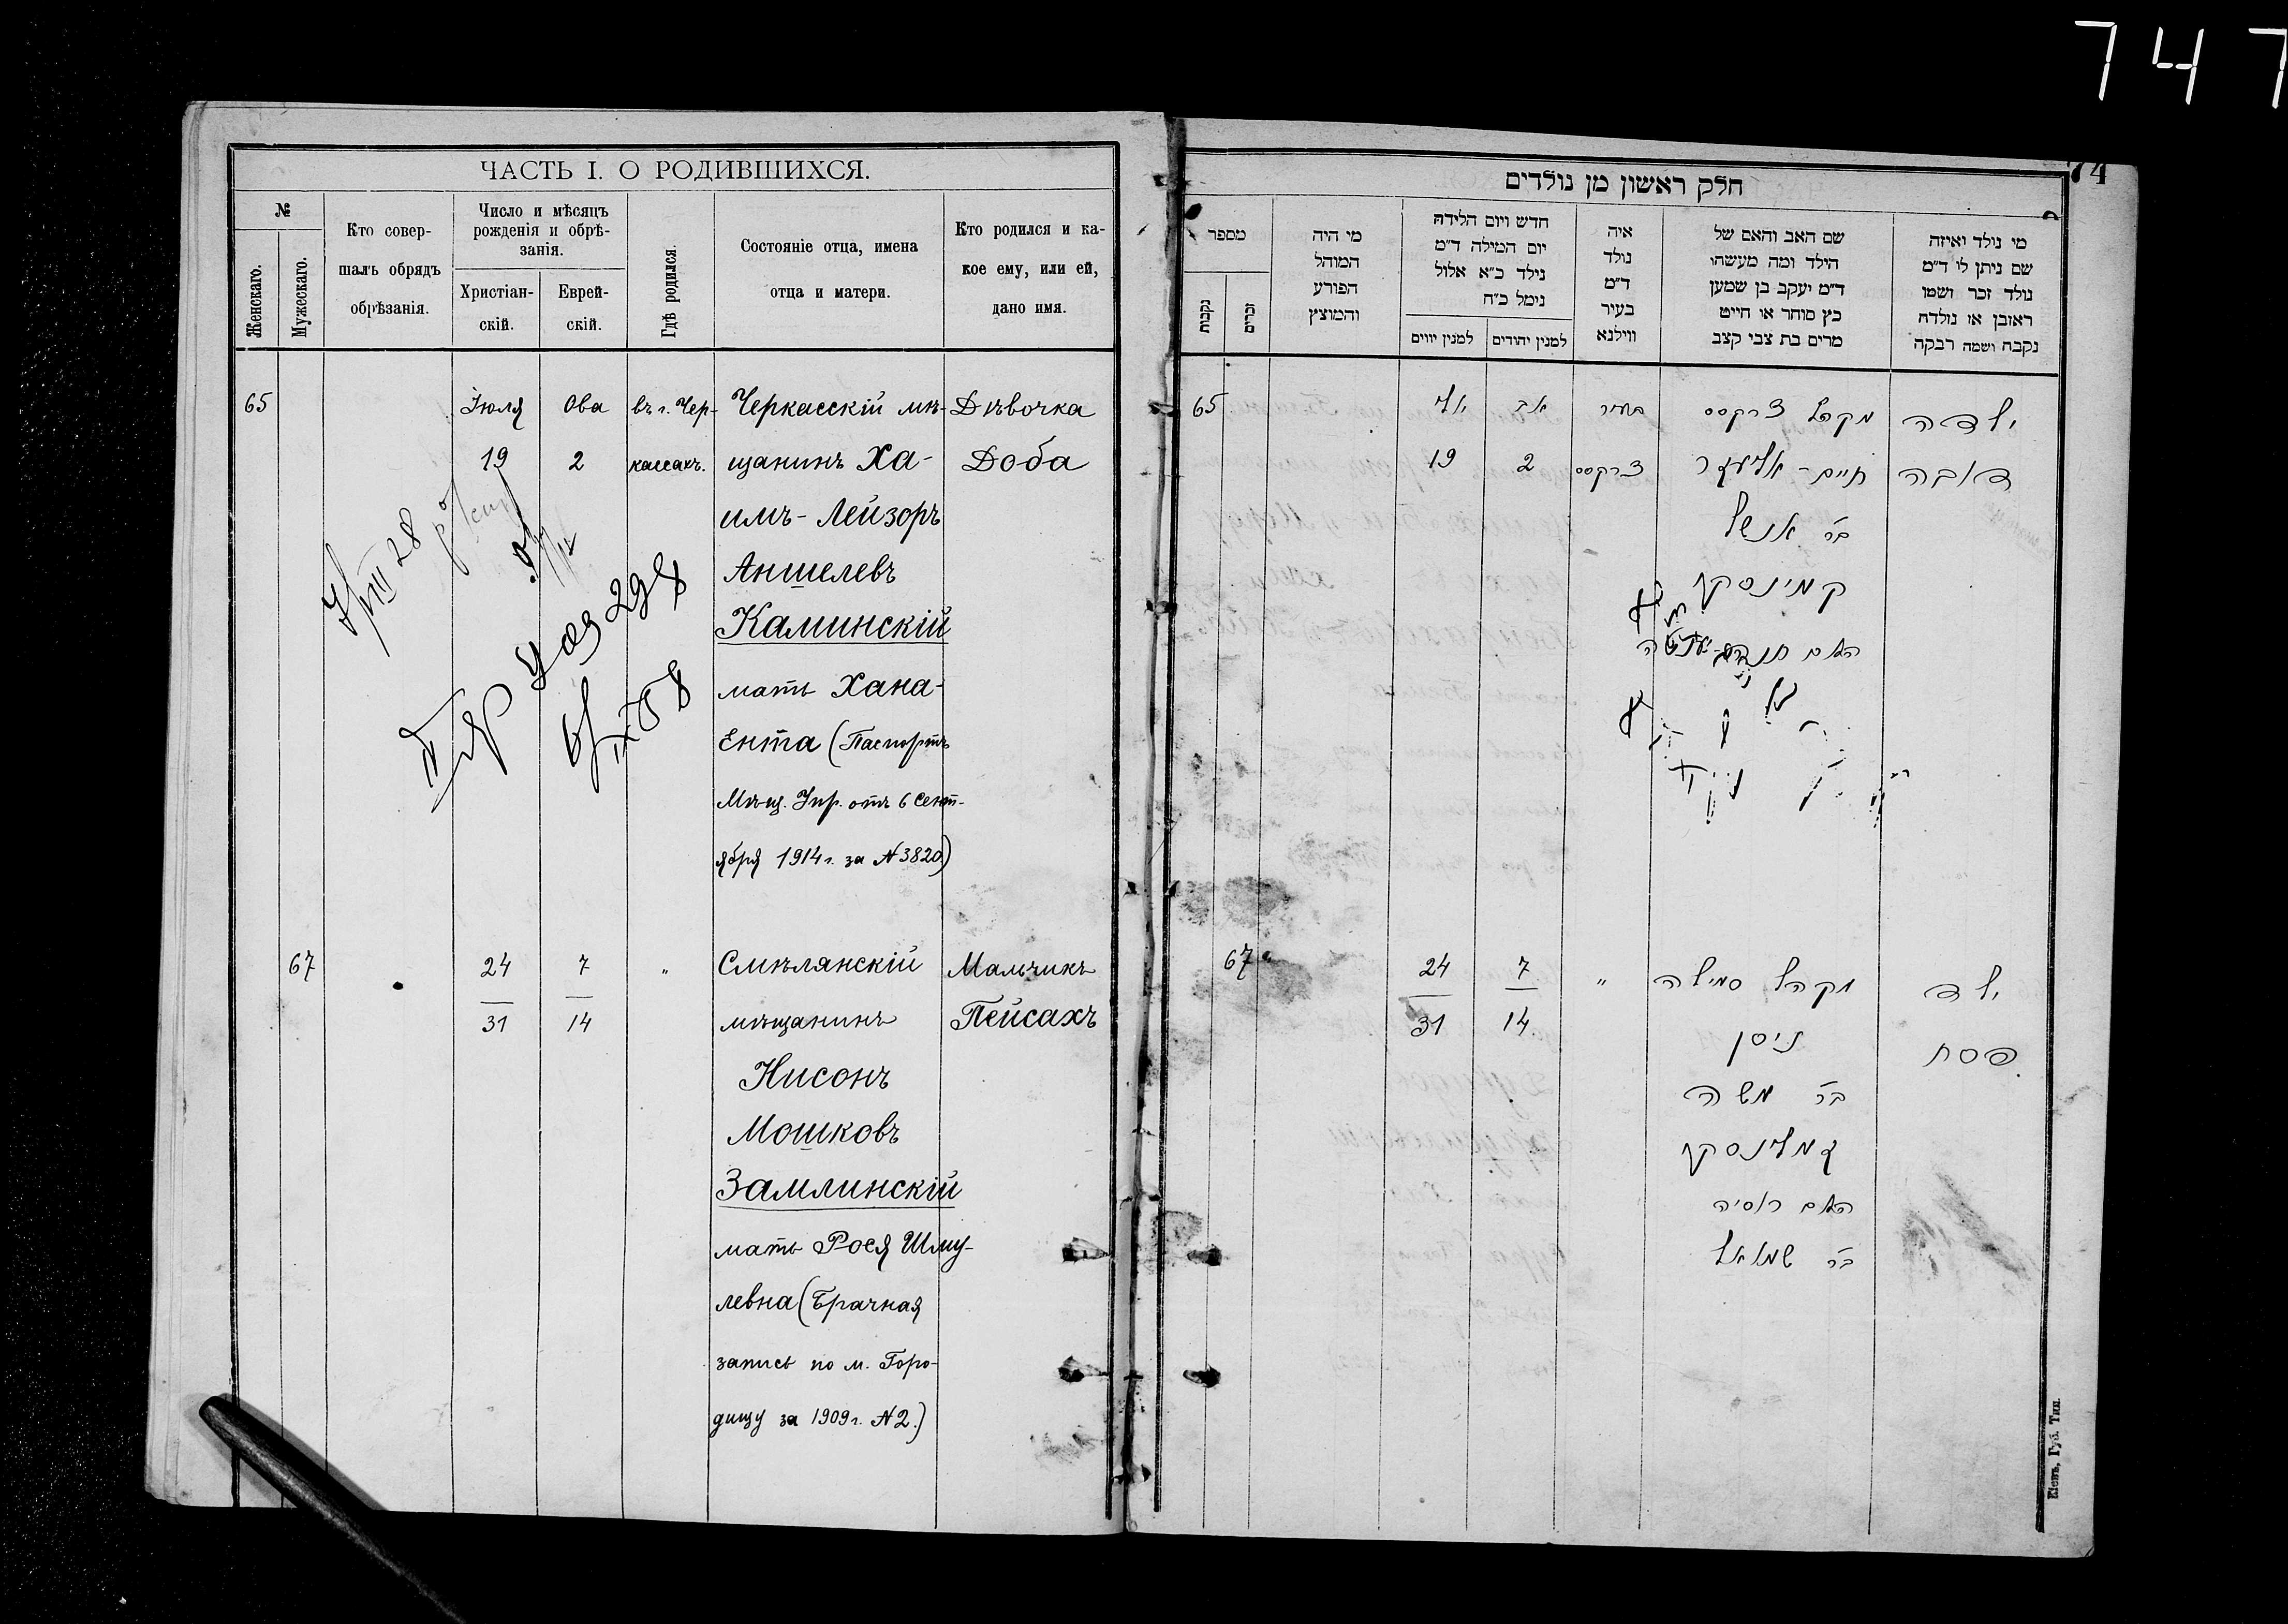 747
ЧАСТЬ I. О РОДИВШИХСЯ.
№
Женскаго.
Мужескаго.
Кто совер-
шалъ обрядъ
обрѣзанія.
Число и мѣсяцъ
рожденія и обрѣ-
занія.
Христіан-
скій.
Еврей-
скій.
Гдѣ родился.
Состояніе отца, имена
отца и матери.
Кто родился и ка-
кое ему, или ей,
дано имя.
65 Іюля Ова въ г. Чер- Черкасскій мѣ- Дѣвочка
19 2 кассахъ. щанинъ Ха- Доба
имъ-Лейзоръ
Аншелевъ
Каминскій
мать Хана-
Ента (Паспортъ
Мѣщ. Упр. отъ 6 Сент-
ября 1914 г. за № 3820)
67 24 7 " Смѣлянскій Мальчикъ
31 14 мѣщанинъ Пейсахъ
Нисонъ
Мошковъ
Замлинскій
мать Рося Шму-
левна (Брачная
запись по м. Горо-
дищу за 1909 г. № 2.)
74
חלק ראשון מן נולדים
מספר
נקבות
זכרים
מי היה
המוהל
הפורע
והמוצץ
חדש ויום הלידה
יום המילה ד"מ
נילד כ"א אלול
נימל כ"ח
למנין יווים
למנין יהודים
איה
נולד
ד"מ
בעיר
ווילנא
שם האב והאם של
הילד ומה מעשהו
ד"מ יעקב בן שמען
כץ סוחר או חייט
מרים בת צבי קצב
מי נולד ואיזה
שם ניתן לו ד"מ
נולד זכר ושמו
ראובן או נולדה
נקבה ושמה רבקה
65 יולי אב בעיר מקהל צרקסס ילדה
19 2 צרקסס חיים-אליעזר דובה
בר אנשל
קמינסקי
האם חנה
67 24 7 " מקהל סמילה ילד
31 14 ניסן פסח
בר משה
זמלינסקי
האם ראסיה
בר שמואל
Кіевъ, Губ. Тип.